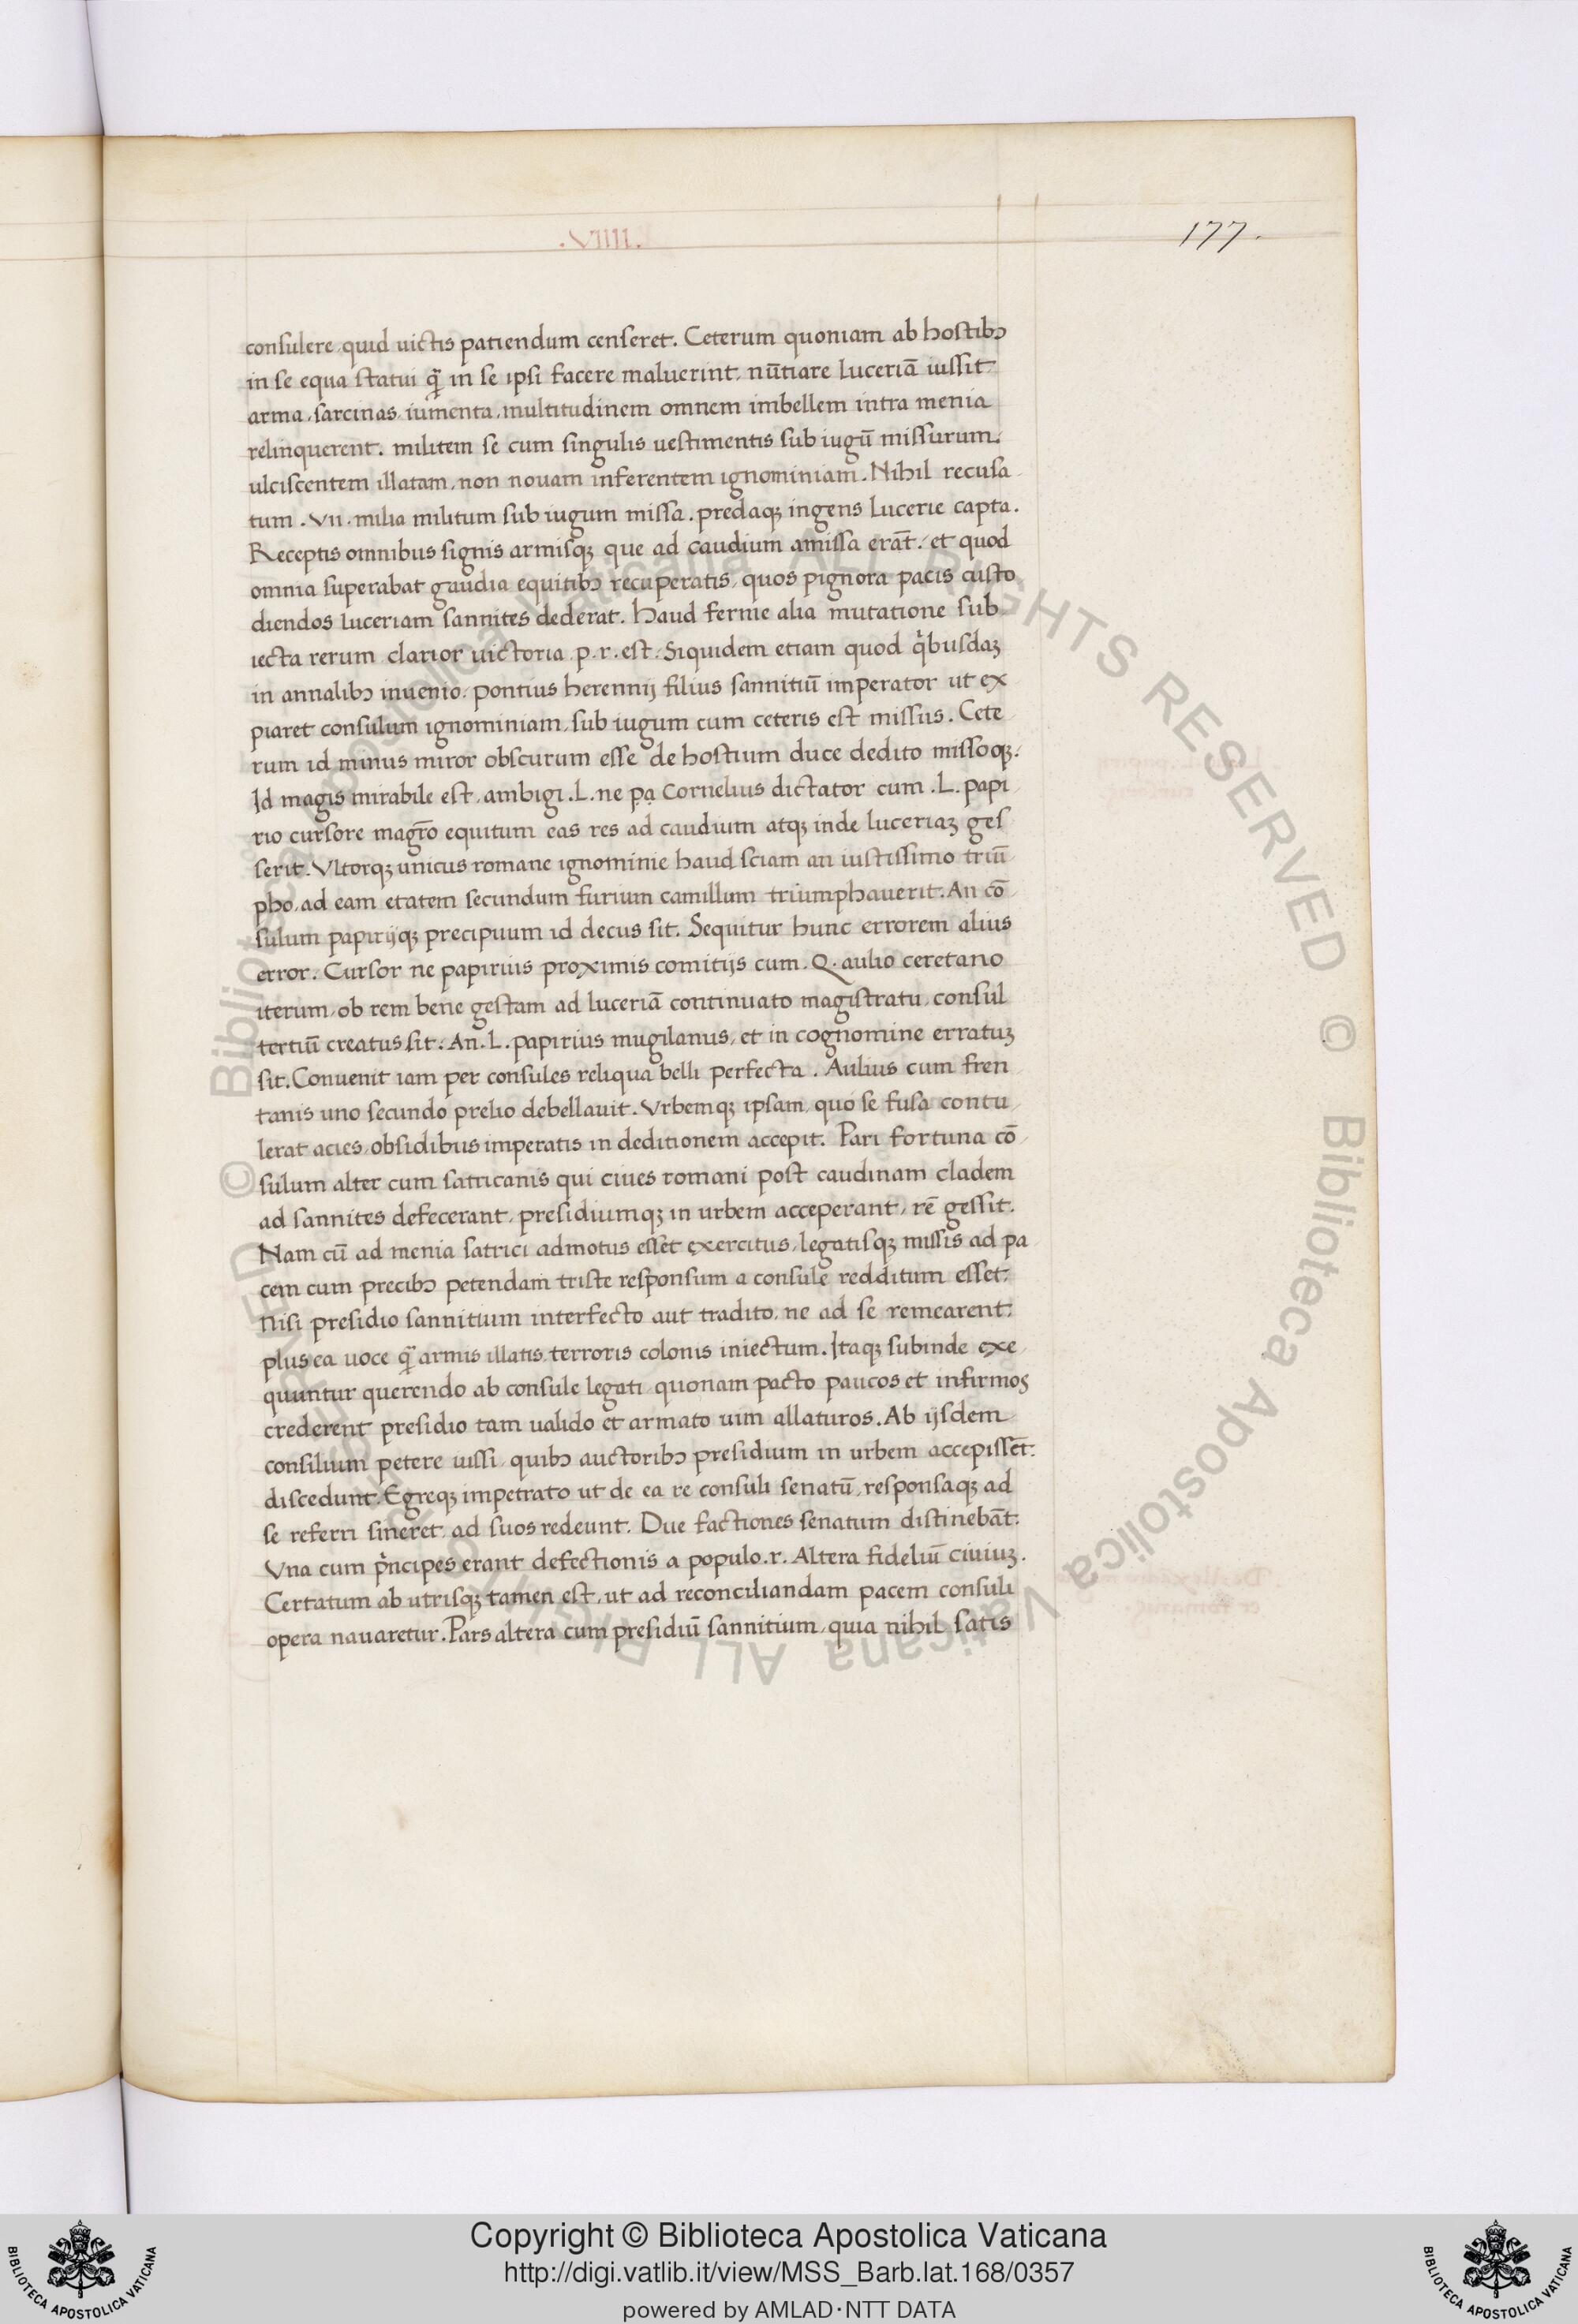 .VIIII.
177.
consulere, quid uictis patiendum censeret. Ceterum quoniam ab hostibꝫ
in se equa statui ꝙ̃ in se ipsi facere maluerint, nũtiare luceriã iussit
arma, sarcinas, iumenta, multitudinem omnem imbellem intra menia
relinquerent. militem se cum singulis uestimentis sub iugũ missurum.
ulciscentem illatam, non nouam inferentem ignominiam. Nihil recusa
tum. VII. milia militum sub iugum missa. predaqꝫ ingens lucerie capta.
Receptis omnibus signis armisqꝫ que ad caudium amissa erãt. et quod
omnia superabat gaudia equitibꝫ recuperatis, quos pignora pacis custo
diendos luceriam sannites dederat. haud ferme alia mutatione sub
iecta rerum clarior uictoria .p.r. est. Siquidem etiam quod q̇busdaꝫ
in annalibꝫ inuenio. pontius herennij filius sannitiũ imperator ut ex
piaret consulum ignominiam, sub iugum cum ceteris est missus. Cete
rum id minus miror obscurum esse de hostium duce dedito missoqꝫ.
Id magis mirabile est, ambigi .L. ne pa Cornelius dictator cum .L. papi
rio cursore magr̃o equitum eas res ad caudium atqꝫ inde luceriaꝫ ges
serit. Vltorqꝫ unicus romane ignominie haud sciam an iustissimo triũ
pho, ad eam etatem secundum furium camillum triumphauerit. An cõ
sulum papirijqꝫ precipuum id decus sit. Sequitur hunc errorem alius
error. Cursor ne papirius proximis comitijs cum. Q. aulio ceretano
iterum, ob rem bene gestam ad luceriã continuato magistratu, consul
tertiũ creatus sit. An. L. papirius mugilanus, et in cognomine erratuꝫ
sit. Conuenit iam per consules reliqua belli perfecta. Aulius cum fren
tanis uno secundo prelio debellauit. Vrbemqꝫ ipsam, quo se fusa contu
lerat acies, obsidibus imperatis in deditionem accepit. Pari fortuna cõ
sulum alter cum satricanis qui ciues romani post caudinam cladem
ad sannites defecerant, presidiumqꝫ in urbem acceperant, rẽ gessit.
Nam cũ ad menia satrici admotus esset exercitus, legatisqꝫ missis ad pa
cem cum precibꝫ petendam triste responsum a consule redditum esset.
Nisi presidio sannitium interfecto aut tradito, ne ad se remearent.
plus ea uoce ꝙ̃ armis illatis terroris colonis iniectum. Itaqꝫ subinde exe
quuntur querendo ab consule legati, quonam pacto paucos et infirmos
crederent presidio tam ualido et armato uim allaturos. Ab ijsdem
consilium petere iussi, quibꝫ auctoribꝫ presidium in urbem accepissẽt.
discedunt. Egreqꝫ impetrato ut de ea re consuli senatũ, responsaqꝫ ad
se referri sineret, ad suos redeunt. Due factiones senatum distinebãt.
Vna cum p̃ncipes erant defectionis a populo.r. Altera fideliũ ciuiuꝫ.
Certatum ab utrisqꝫ tamen est, ut ad reconciliandam pacem consuli
opera nauaretur. Pars altera cum presidiũ sannitium, quia nihil satis
© Biblioteca Apostolica Vaticana ALL RIGHTS RESERVED © Biblioteca Apostolica Vaticana ALL RIGHTS RESERVED
Copyright © Biblioteca Apostolica Vaticana
http://digi.vatlib.it/view/MSS_Barb.lat.168/0357
powered by AMLAD·NTT DATA
BIBLIOTECA APOSTOLICA VATICANA
BIBLIOTECA APOSTOLICA VATICANA